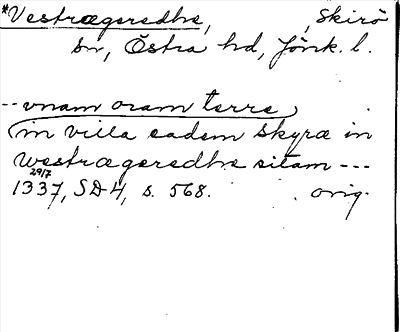 *Vestrægeredhe, , Skirö
sn, Östra hd, Jönk. l.
-- vnam oram terre
(in villa eadem Skyræ in
Westrægeredhe sitam ---
29/7
1337, SD 4, s. 568. orig.